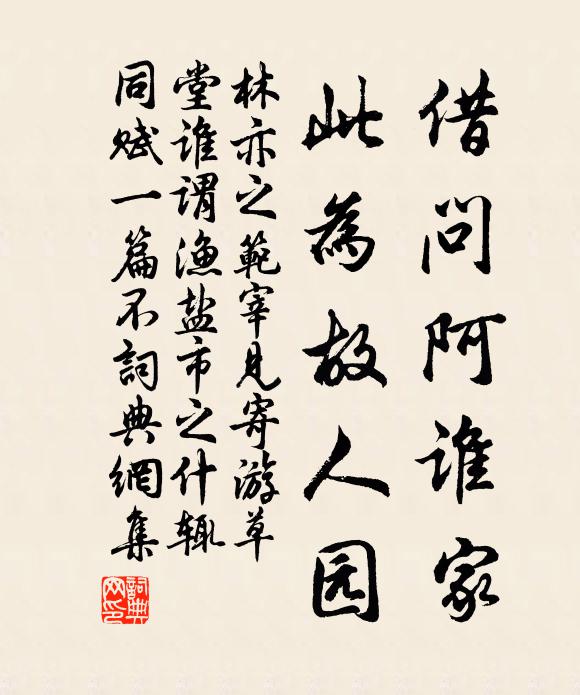 借问阿谁家
此為故人园
林亦之範宰見寄游草
堂谁谓渔盐市之什辄
同赋一篇不詞典網集
詞典網印